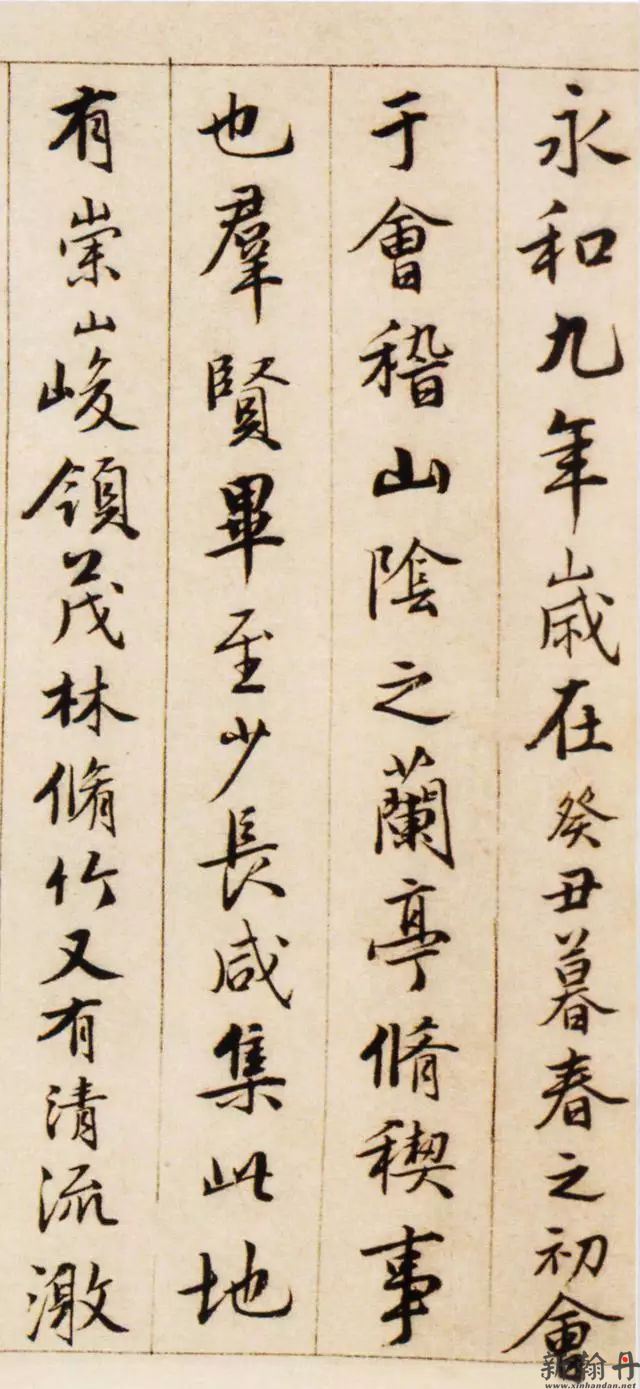 永和九年歲在癸丑暮春之初會
于會稽山陰之蘭亭脩稧事
也羣賢畢至少長咸集此地
有崇山峻領茂林脩竹又有清流激
新翰丹
www.xinhandan.net